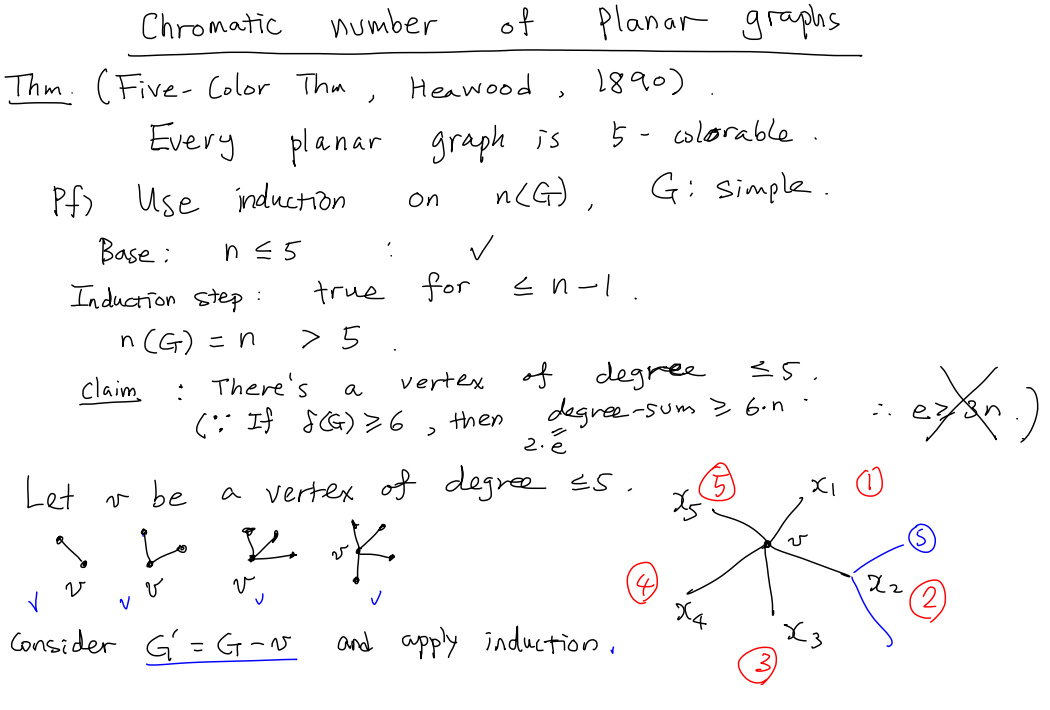 Chromatic number of planar graphs
Thm. (Five-Color Thm, Heawood, 1890).
Every planar graph is 5-colorable.
Pf) Use induction on n(G), G: simple.
Base: n ≤ 5 : ✓
Induction step: true for ≤ n-1.
n(G) = n > 5.
Claim : There's a vertex of degree ≤5.
(∵ If δ(G) ≥ 6, then degree-sum ≥ 6·n. ∴ e ≥ 3n.)
2·e
Let v be a vertex of degree ≤5.
x5 ⑤ x1 ①
v v v v v ⑤
x2 ②
④ x4 x3 ③
Consider G' = G-v and apply induction.